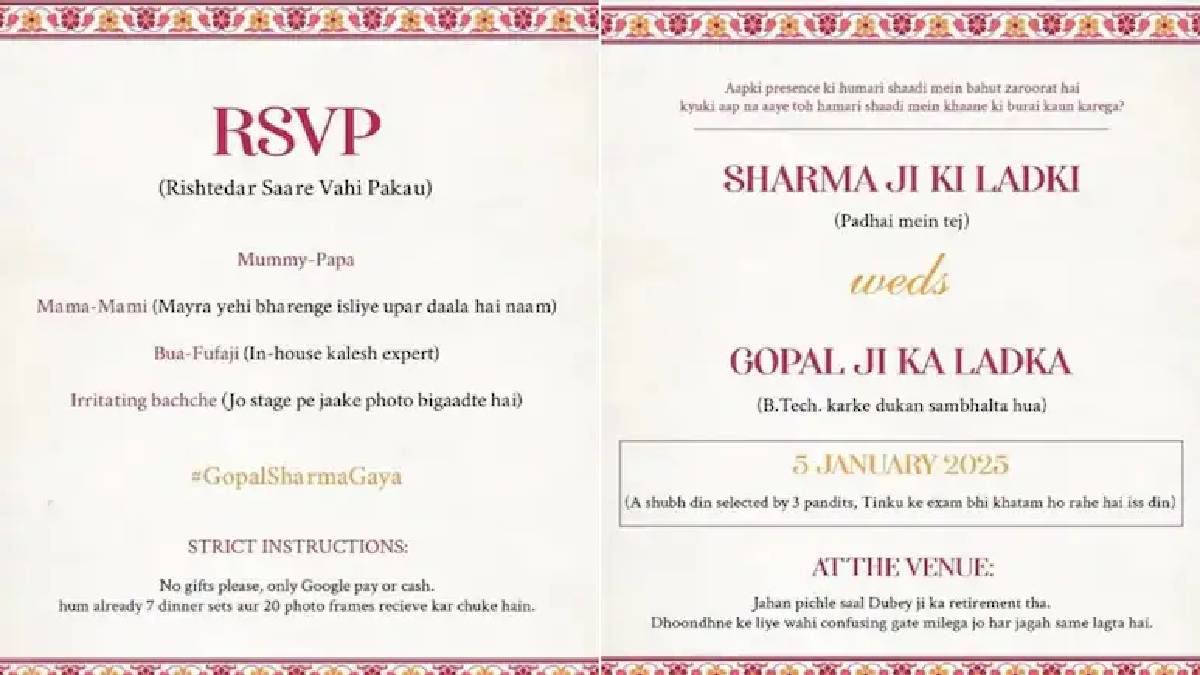 RSVP
(Rishtedar Saare Vahi Pakau)
Mummy-Papa
Mama-Mami (Mayra yehi bharenge isliye upar daala hai naam)
Bua-Fufaji (In-house kalesh expert)
Irritating bachche (Jo stage pe jaake photo bigaadte hai)
#GopalSharmaGaya
STRICT INSTRUCTIONS:
No gifts please, only Google pay or cash.
hum already 7 dinner sets aur 20 photo frames recieve kar chuke hain.
Aapki presence ki humari shaadi mein bahut zaroorat hai
kyuki aap na aaye toh hamari shaadi mein khaane ki burai kaun karega?
SHARMA JI KI LADKI
(Padhai mein tej)
weds
GOPAL JI KA LADKA
(B.Tech. karke dukan sambhalta hua)
5 JANUARY 2025
(A shubh din selected by 3 pandits, Tinku ke exam bhi khatam ho rahe hai iss din)
AT THE VENUE:
Jahan pichle saal Dubey ji ka retirement tha.
Dhoondhne ke liye wahi confusing gate milega jo har jagah same lagta hai.